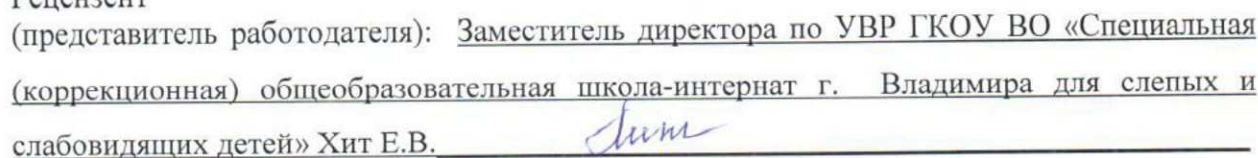 Рецензент
(представитель работодателя): Заместитель директора по УВР ГКОУ ВО «Специальная
(коррекционная) общеобразовательная школа-интернат г. Владимира для слепых и
слабовидящих детей» Хит Е.В.